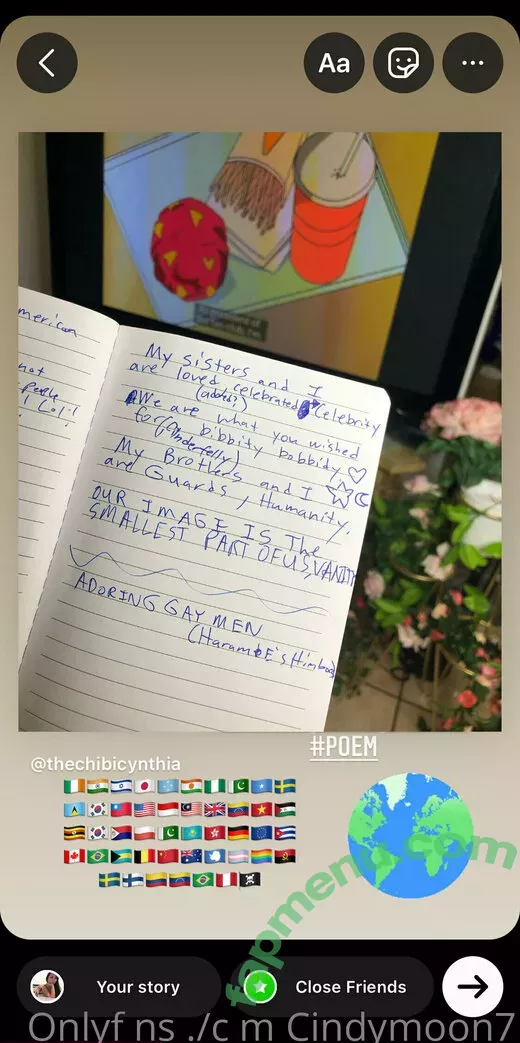 Aa
merican
not
people
! Lol!
My sisters and I
are loved, celebrated Celebrity
(added?)
We are what you wished
for bibbity bobbidy
My Brothers and I
are Guards, Humanity.
OUR IMAGE IS The
SMALLEST PART OF US VANITY
ADORING GAY MEN
#POEM
@thechibicynthia
fapmenu.com
Your story
Close Friends
Onlyf ns ./c m Cindymoon7